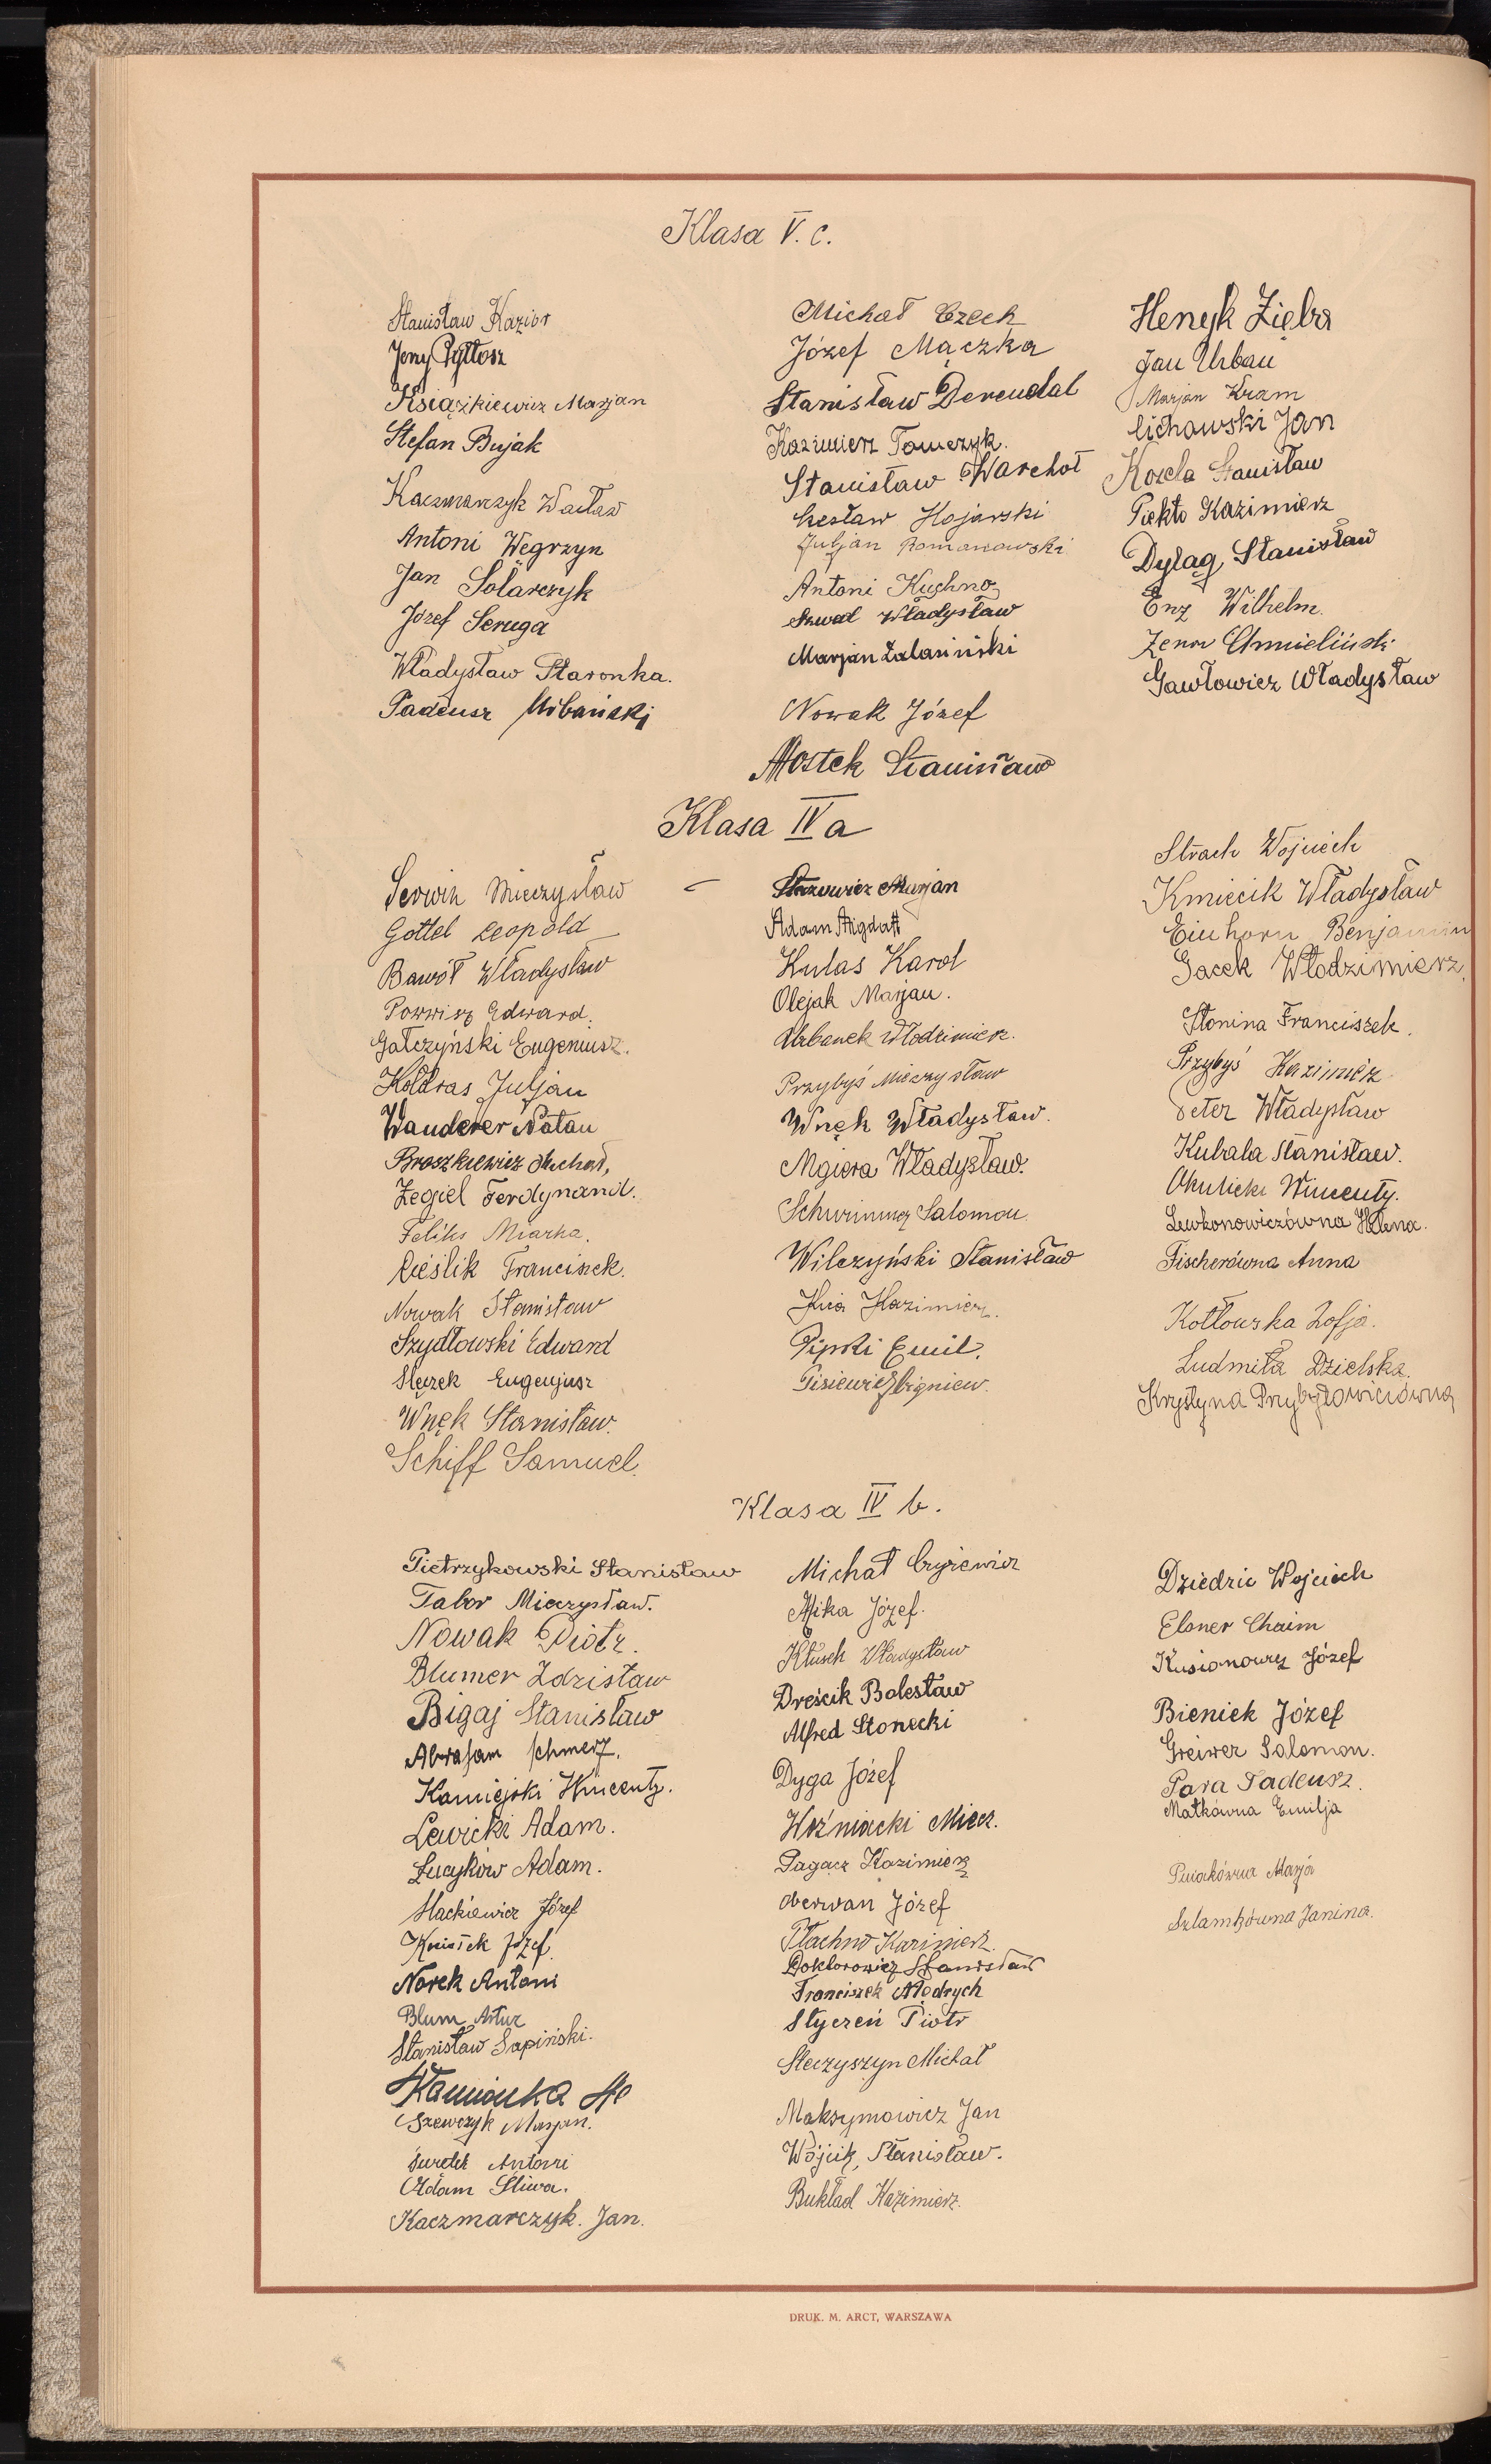 Klasa V. c.
Stanisław Kazior
Jerzy Pyttosz
Książkiewicz Marjan
Stefan Bujak
Kaczmarczyk Wacław
Antoni Węgrzyn
Jan Solarczyk
Józef Seruga
Władysław Staronka.
Tadeusz Urbański
Michał Czech
Józef Mączka
Stanisław Derendal
Kazimierz Tomczyk.
Stanisław Warchoł
Czesław Hojarski
Juljan Romanowski
Antoni Kuchno
Szwal Władysław
Marjan Zalasiński
Nowak Józef
Mostek Stanisław
Henryk Zięba
Jan Urban
Marjan Kram
Cichawski Jan
Kozela Stanisław
Piekło Kazimierz
Dyląg Stanisław
Enz Wilhelm.
Zenon Chmieliński
Gawłowicz Władysław
Klasa IV a
Serwin Mieczysław
Gottel Leopold
Bawół Władysław
Powwisz Edward.
Gałczyński Eugeniusz.
Kołdras Juljan
Wanderer Natan
Broszkiewicz Michał,
Żegiel Ferdynand.
Feliks Miarka.
Cieślik Franciszek.
Nowak Stanisław
Szydłowski Edward
Ślęzek Eugenjusz
Wnęk Stanisław.
Schiff Samuel.
Starowicz Marjan
Adam Migdał
Kulas Karol
Olejak Marjan.
Urbanek Włodzimierz.
Przybyś Mieczysław
Wnęk Władysław.
Mgiera Władysław.
Schwimmer Salomon.
Wilczyński Stanisław
Kazimierz.
Pipski Emil.
Gisiewicz Zbigniew.
Strach Wojciech
Kmiecik Władysław
Einhorn Benjamin
Gacek Włodzimierz.
Słonina Franciszek.
Przybyś Kazimierz
Peter Władysław
Kubala Stanisław.
Okulicki Wincenty.
Lewkonowiczówna Helena.
Fischerówna Anna
Kotłowska Zofja.
Ludmiła Dzielska.
Krystyna Przybyłowiczówna
Klasa IV b.
Pietrzykowski Stanisław
Tabor Mieczysław.
Nowak Piotr.
Blumer Zdzisław
Bigaj Stanisław
Abraham Schmerz.
Kamiejski Wincenty.
Lewicki Adam.
Łucyków Adam.
Mackiewicz Józef
Kosiołek Józef.
Norek Antoni
Blum Artur
Stanisław Sapiński.
Kamionka
Szewczyk Marjan.
Surdek Antoni
Adam Śliwa.
Kaczmarczyk. Jan.
Michał Czyżewicz
Mika Józef.
Kłusek Władysław
Dreścik Bolesław
Alfred Słonecki
Dyga Józef
Woźniacki Miecz.
Pagacz Kazimierz
Oberwan Józef
Płachno Kazimierz.
Doktorowicz Stanisław
Franciszek Mądrych
Styczeń Piotr
Steczyszyn Michał
Maksymowicz Jan
Wójcik, Stanisław.
Bukład Kazimierz.
Dziedzic Wojciech
Elsner Chaim
Kusionowicz Józef
Bieniek Józef
Greiwer Salomon.
Para Tadeusz.
Matkówna Emilja
Pniakówna Marja
Szlamkówna Janina.
DRUK. M. ARCT, WARSZAWA